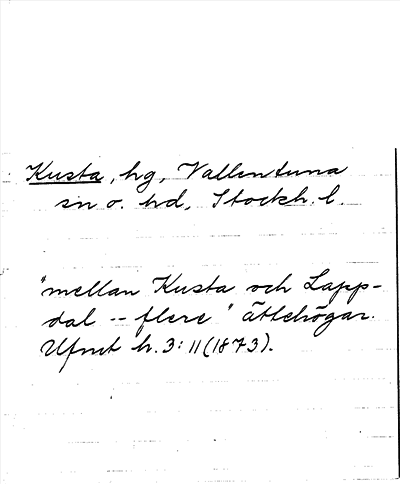 Kusta, hg, Vallentuna
sn o. hd, Stockh. l.
"mellan Kusta och Lapp-
dal -- flere" ättehögar.
Ufmt h. 3:11 (1873).